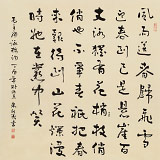 風雨送春歸飛雪
迎春到已是懸崖百
丈冰猶有花枝俏
俏也不爭春只把春
來報待到山花爛漫
時她在叢中笑
毛主席詠梅詞